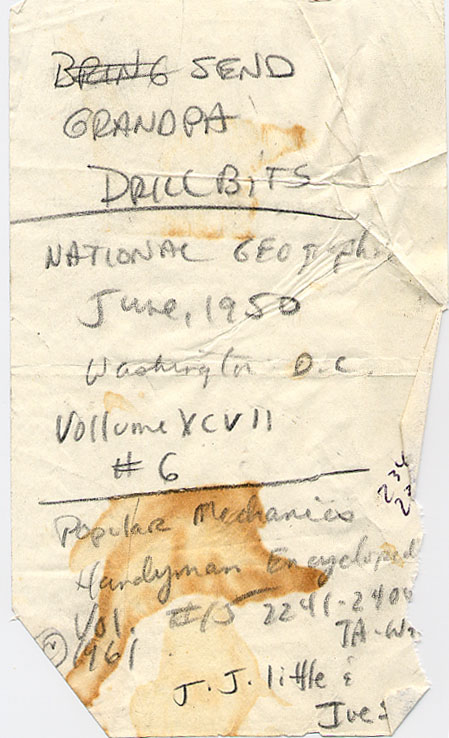 BRING SEND
GRANDPA
DRILL BITS
NATIONAL Geographi
June, 1950
Washington D.C.
Vollume XCVII
# 6
234
Popular Mechanics
Handyman Encycloped
Vol. #15 2241-240
© 1961 TA-W
J. J. little &
Ive